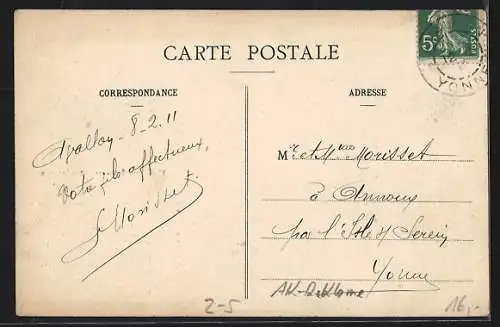 CARTE POSTALE
CORRESPONDANCE
ADRESSE
5c
POSTES
YONNE
Avallon - 8-2-11
Votre fils affectueux,
Morisset
Mr et Mme Morisset
à Annoux
par l'Isle s/ Serein
Yonne
AK-Reklame
2-5
16,-